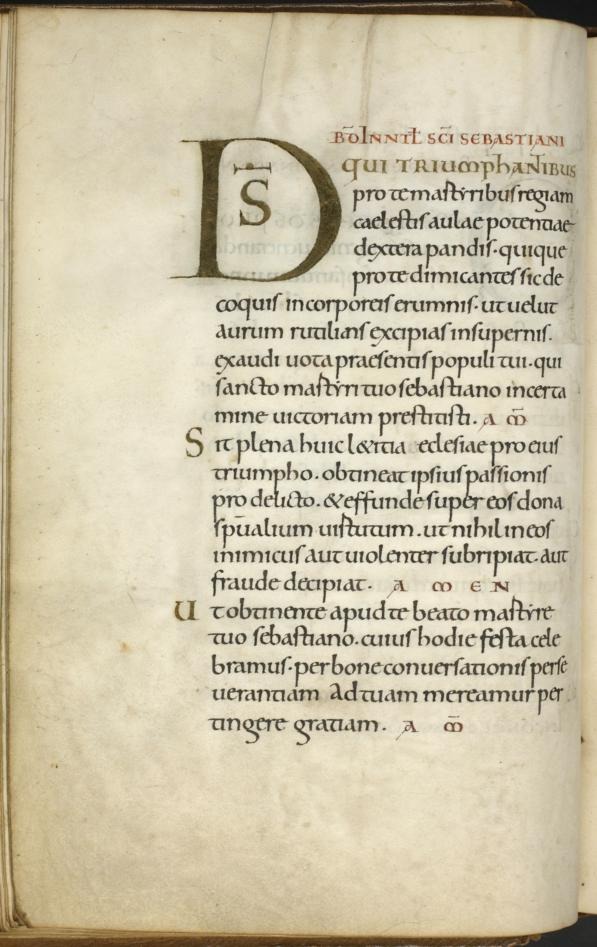 BD̄ IN NTL̄ SC̄I SEBASTIANI
DS̄ QUI TRIUMPHANTIBUS
pro te martyribus regiam
caelestis aulae potentiae
dextera pandis · quique
pro te dimicantes sic de
coquis in corporeis erumnis · ut uelut
aurum rutilans excipias in supernis ·
exaudi uota praesentis populi tui · qui
sancto martyri tuo sebastiano in certa
mine uictoriam prestitisti . A M̄
Sit plena huic l&itia eclesiae pro eius
triumpho · obtineat ipsius passionis
pro delicto . & effunde super eos dona
sp̄ualium uirtutum . ut nihil in eos
inimicus aut uiolenter subripiat · aut
fraude decipiat . A M E N
Ut obtinente apud te beato martyre
tuo sebastiano . cuius hodie festa cele
bramus · per bone conuersationis perse
uerantiam Ad tuam mereamur per
tingere gratiam . A M̄